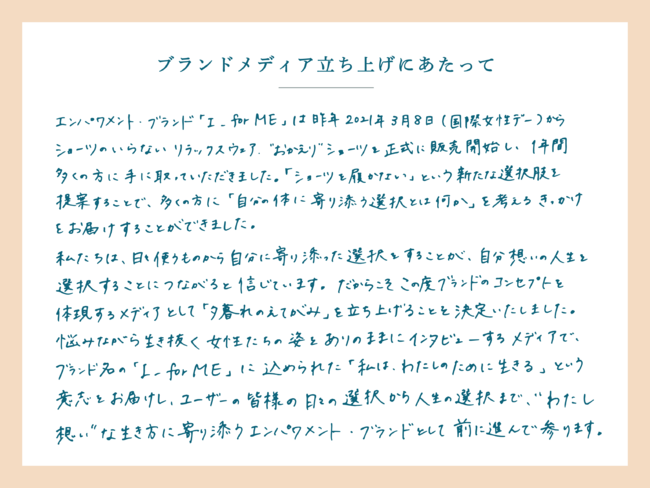 ブランドメディア立ち上げにあたって
エンパワメント・ブランド「I_for ME」は昨年2021年3月8日(国際女性デー)から
ショーツのいらないリラックスウェア、"おかえり"ショーツを正式に販売開始し、1年間
多くの方に手に取っていただきました。「ショーツを履かない」という新たな選択肢を
提案することで、多くの方に「自分の体に寄り添う選択とは何か」を考えるきっかけ
をお届けすることができました。
私たちは、日々使うものから自分に寄り添った選択をすることが、自分想いの人生を
選択することにつながると信じています。だからこそこの度ブランドのコンセプトを
体現するメディアとして「夕暮れのえてがみ」を立ち上げることを決定いたしました。
悩みながら生き抜く女性たちの姿をありのままにインタビューするメディアで、
ブランド名の「I_for ME」に込められた「私は、わたしのために生きる」という
意志をお届けし、ユーザーの皆様の日々の選択から人生の選択まで、"わたし
想い"な生き方に寄り添うエンパワメント・ブランドとして前に進んで参ります。